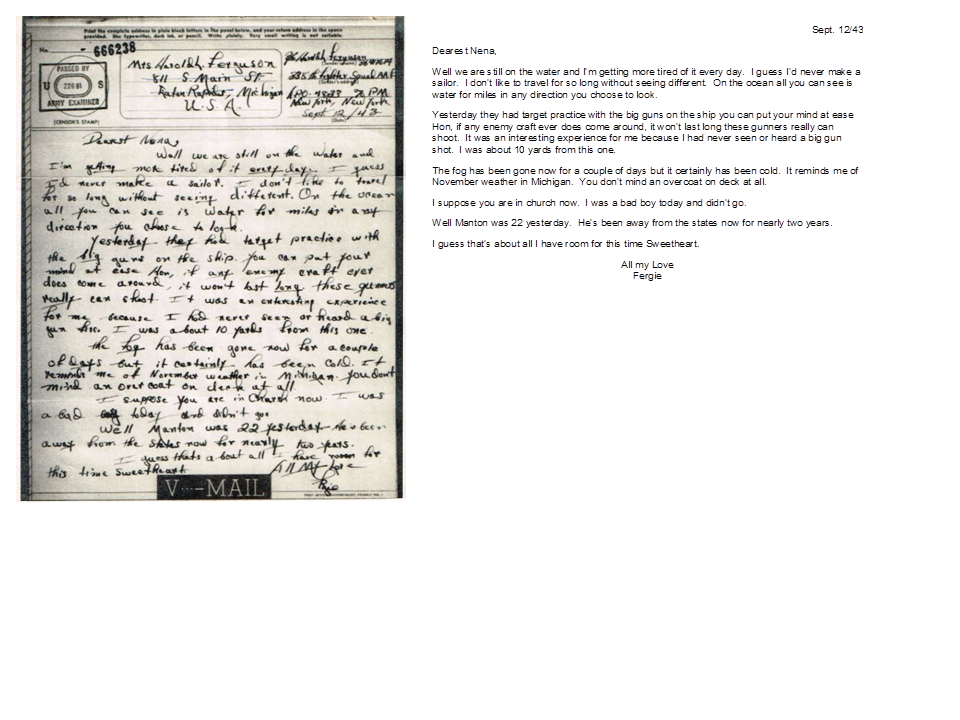 Print the complete address in plain block letters in the panel below, and your return address in the space
provided. Use typewriter, dark ink, or pencil. Write plainly. Very small writing is not suitable.
No. 666238
PASSED BY
U S
ARMY EXAMINER
(CENSOR'S STAMP)
Mrs Harold Ferguson
811 S. Main St.
Eaton Rapids, Michigan
U.S.A.
Ferguson
New York, New York
Sept. 12/43
Dearest Nena,
Well we are still on the water and
I'm getting more tired of it every day. I guess
I'd never make a sailor. I don't like to travel
for so long without seeing different. On the ocean
all you can see is water for miles in any
direction you choose to look.
Yesterday they had target practice with
the big guns on the ship. You can put your
mind at ease Hon, if any enemy craft ever
does come around, it won't last long these gunners
really can shoot. It was an interesting experience
for me because I had never seen or heard a big
gun fire. I was about 10 yards from this one.
the fog has been gone now for a couple
of days but it certainly has been cold. It
reminds me of November weather in Michigan. You don't
mind an over coat on deck at all.
I suppose you are in Church now. I was
a bad boy today and didn't go.
Well Manton was 22 yesterday. He's been
away from the states now for nearly two years.
I guess thats about all I have room for
this time Sweetheart.
All My Love
Fergie
V···-MAIL
Sept. 12/43
Dearest Nena,
Well we are still on the water and I'm getting more tired of it every day. I guess I'd never make a
sailor. I don't like to travel for so long without seeing different. On the ocean all you can see is
water for miles in any direction you choose to look.
Yesterday they had target practice with the big guns on the ship you can put your mind at ease
Hon, if any enemy craft ever does come around, it won't last long these gunners really can
shoot. It was an interesting experience for me because I had never seen or heard a big gun
shot. I was about 10 yards from this one.
The fog has been gone now for a couple of days but it certainly has been cold. It reminds me of
November weather in Michigan. You don't mind an overcoat on deck at all.
I suppose you are in church now. I was a bad boy today and didn't go.
Well Manton was 22 yesterday. He's been away from the states now for nearly two years.
I guess that's about all I have room for this time Sweetheart.
All my Love
Fergie